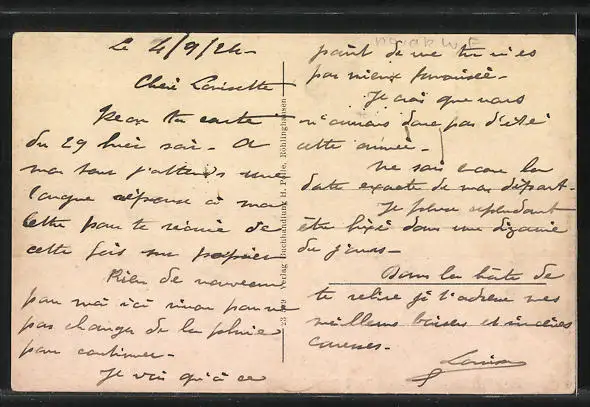 Le 4/9/24-
Chère Louisette
Reçu ta carte
du 29 hier soir. A
mon tour j'attends une
longue réponse à ma
lettre pour te réunir de
cette fois sur papier
Rien de nouveau
pour moi ici sinon pour ne
pas changer de la pluie
pour continuer-
Je vois qu'à ce
point de vue tu n'es
pas mieux favorisée-
Je crois que nous
n'aurons donc pas d'été
cette année-
Ne sais encore la
date exacte de mon départ-
Je pense cependant
être fixé dans une dizaine
de jours-
Dans la hâte de
te relire je t'adresse mes
meilleurs baisers et sincères
caresses-
Louis
23 Verlag Buchhandlung H. Röhlinghausen